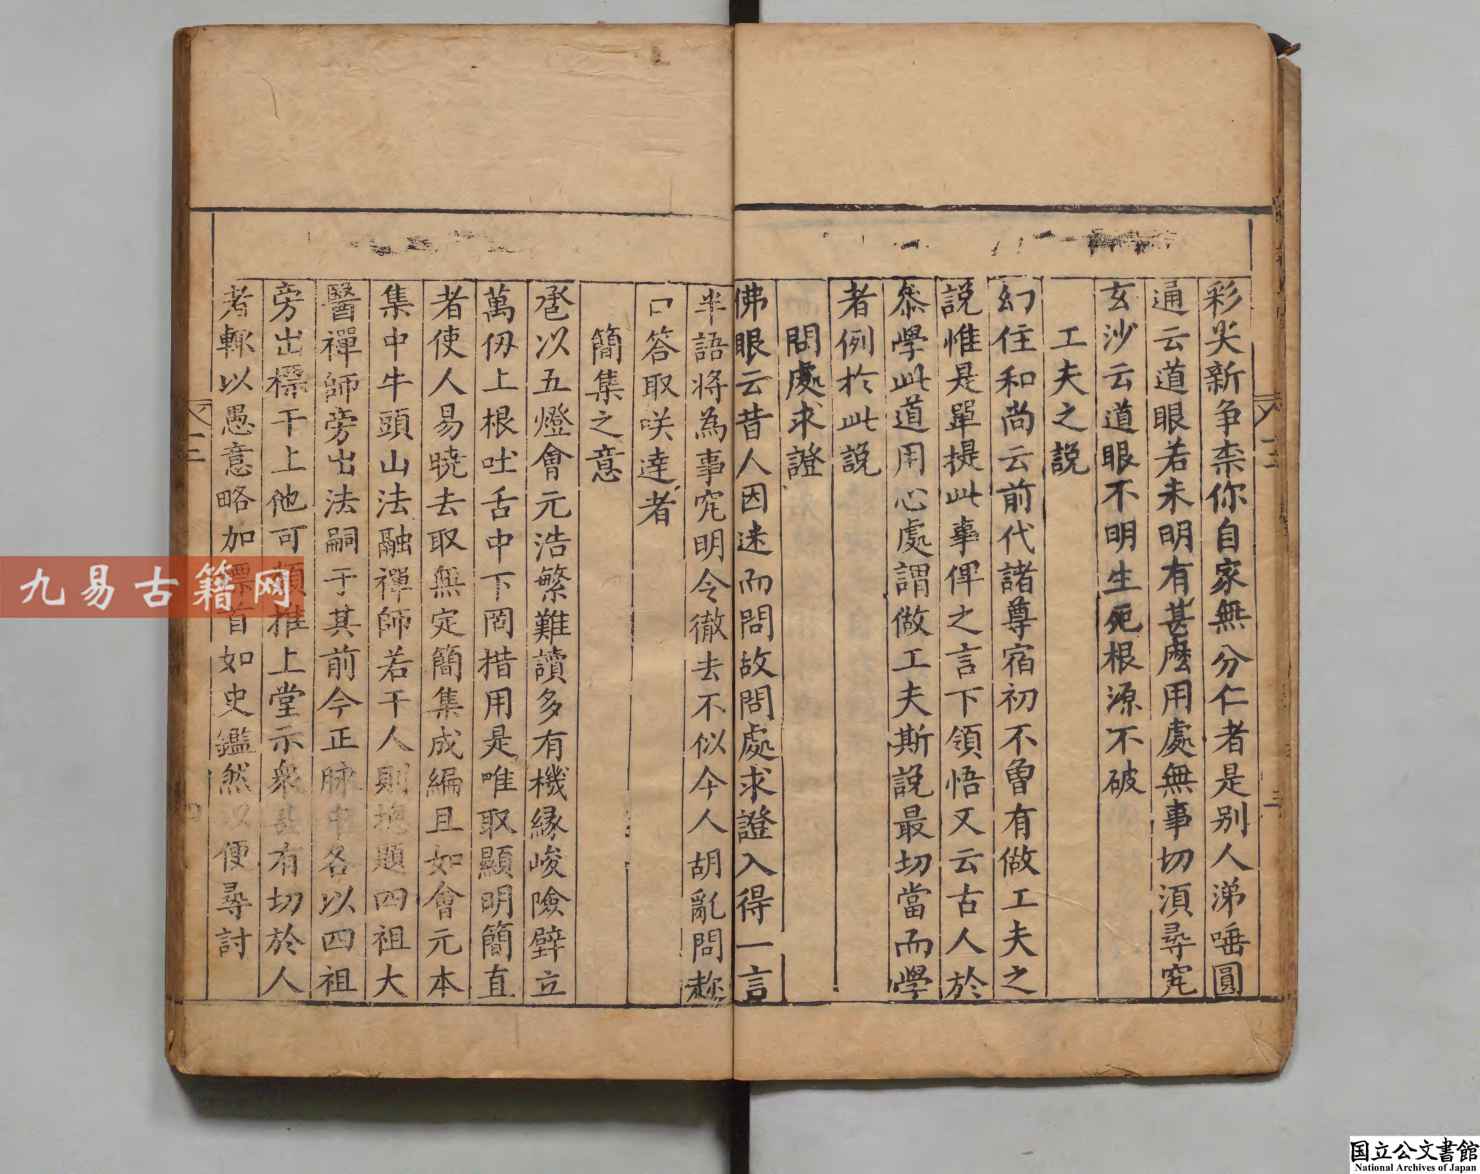 彩尖新争柰你自家無分仁者是别人涕唾圓
通云道眼若未明有甚麽用處無事切湏尋究
玄沙云道眼不明生死根源不破
工夫之說
幻住和尚云前代諸尊宿初不曾有做工夫之
說惟是單提此事俾之言下領悟又云古人於
叅學此道用心處謂做工夫斯說最切當而學
者例於此說
問處求證
佛眼云昔人因迷而問故問處求證入得一言
半語将為事究明令徹去不似今人胡亂問趂
口答取咲達者
簡集之意
秬以五燈會元浩繁難讀多有機緣峻險壁立
萬仞上根吐舌中下罔措用是唯取顯明簡直
者使人易曉去取無定簡集成編且如會元本
集中牛頭山法融禪師若干人則揔題四祖大
醫禪師旁出法嗣于其前今正脉中各以四祖
旁出標干上他可類推上堂示衆甚有切於人
者輙以愚意略加標首如史鑑然以便尋討
九易古籍网
国立公文書館
National Archives of Japan